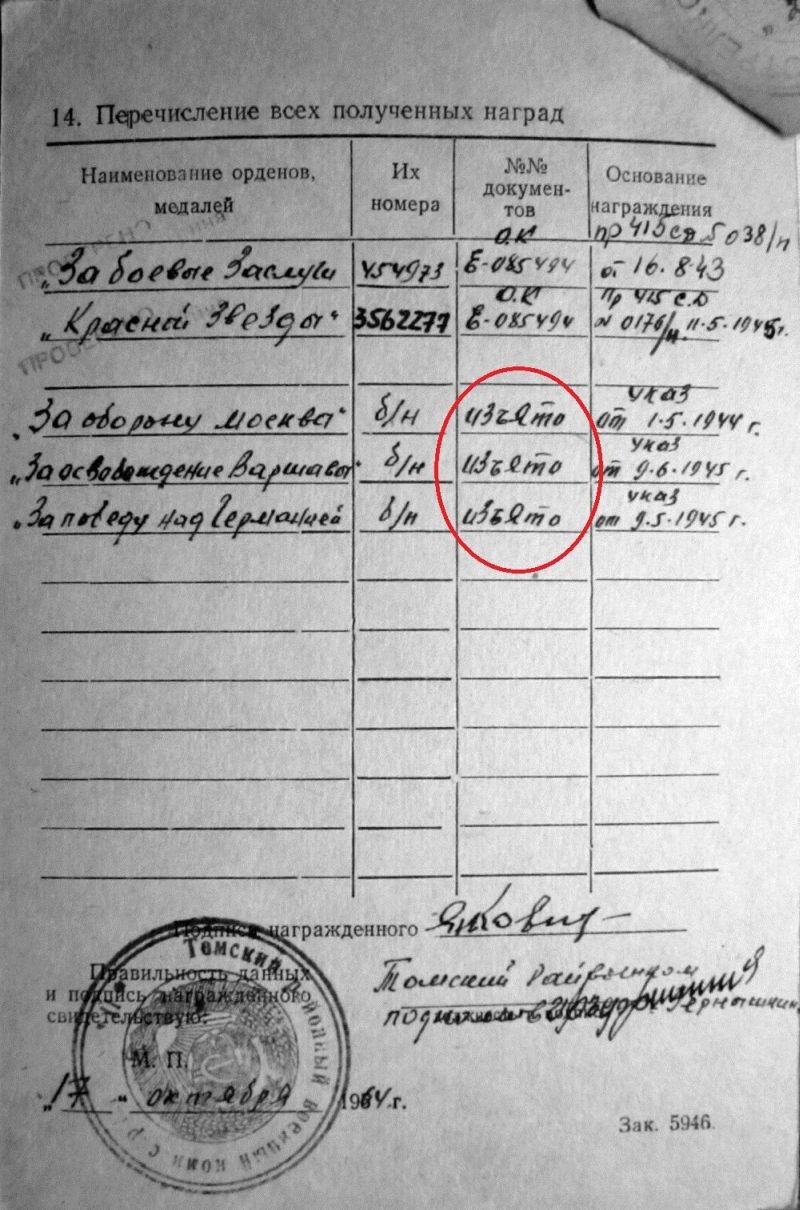 14. Перечисление всех полученных наград
Наименование орденов, медалей
Их номера
№№ документов
Основание награждения
О.К пр 415 сд № 038/н
„За боевые Заслуги 454973 Е-085494 от 16.8.43
О.К Пр 415 с.д
„Красной Звезды" 3562277 Е-085494 № 0176/н 11.5.1945г.
ПРОВЕРЕНО
указ
„За оборону Москва" б/н изъято от 1.5.1944 г.
указ
„За освобождение Варшавы" б/н изъято от 9.6.1945 г.
указ
„За победу над Германией б/н изъято от 9.5.1945 г.
Подпись награжденного
Правильность данных
и подпись награжденного
свидетельствую:
Томский Райвоенком
М. П.
„17 " октября 1964 г.
Зак. 5946.
Томский военный